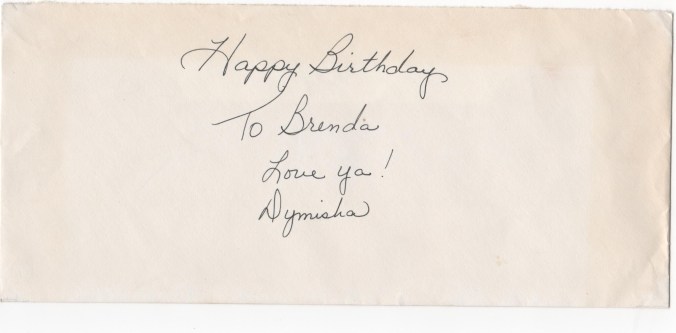 Happy Birthday
To Brenda
Love ya!
Dymisha